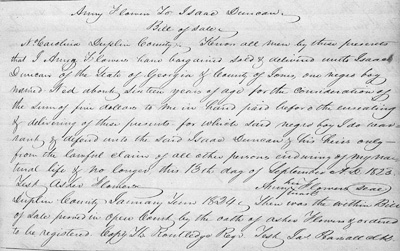 Amy Flowers To Isaac Duncan
Bill of Sale
N. Carolina Duplin County Know all men by these presents
that I Amy Flowers have bargained sold & delivered unto Isaac
Duncan of the State of Georgia & County of Jones, one negro boy
named Ned about sixteen years of age for the consideration of
the sum of five dollars to me in hand paid before the ensealing
& delivering of these presents for which said negro boy I do war
rant & defend unto the said Isaac Duncan & his heirs only
from the lawful claim of all other persons enduring of my na
tural life & no longer this 13th day of September A.D. 1823.
Test Asher Flowers Amy her mark Flowers Seal
Duplin County January Term 1824. Then was the within Bill
of Sale proved in open Court by the oath of Asher Flowers & ordered
to be registered. Copy Routledge Regr. Test Jas Pearsall clk